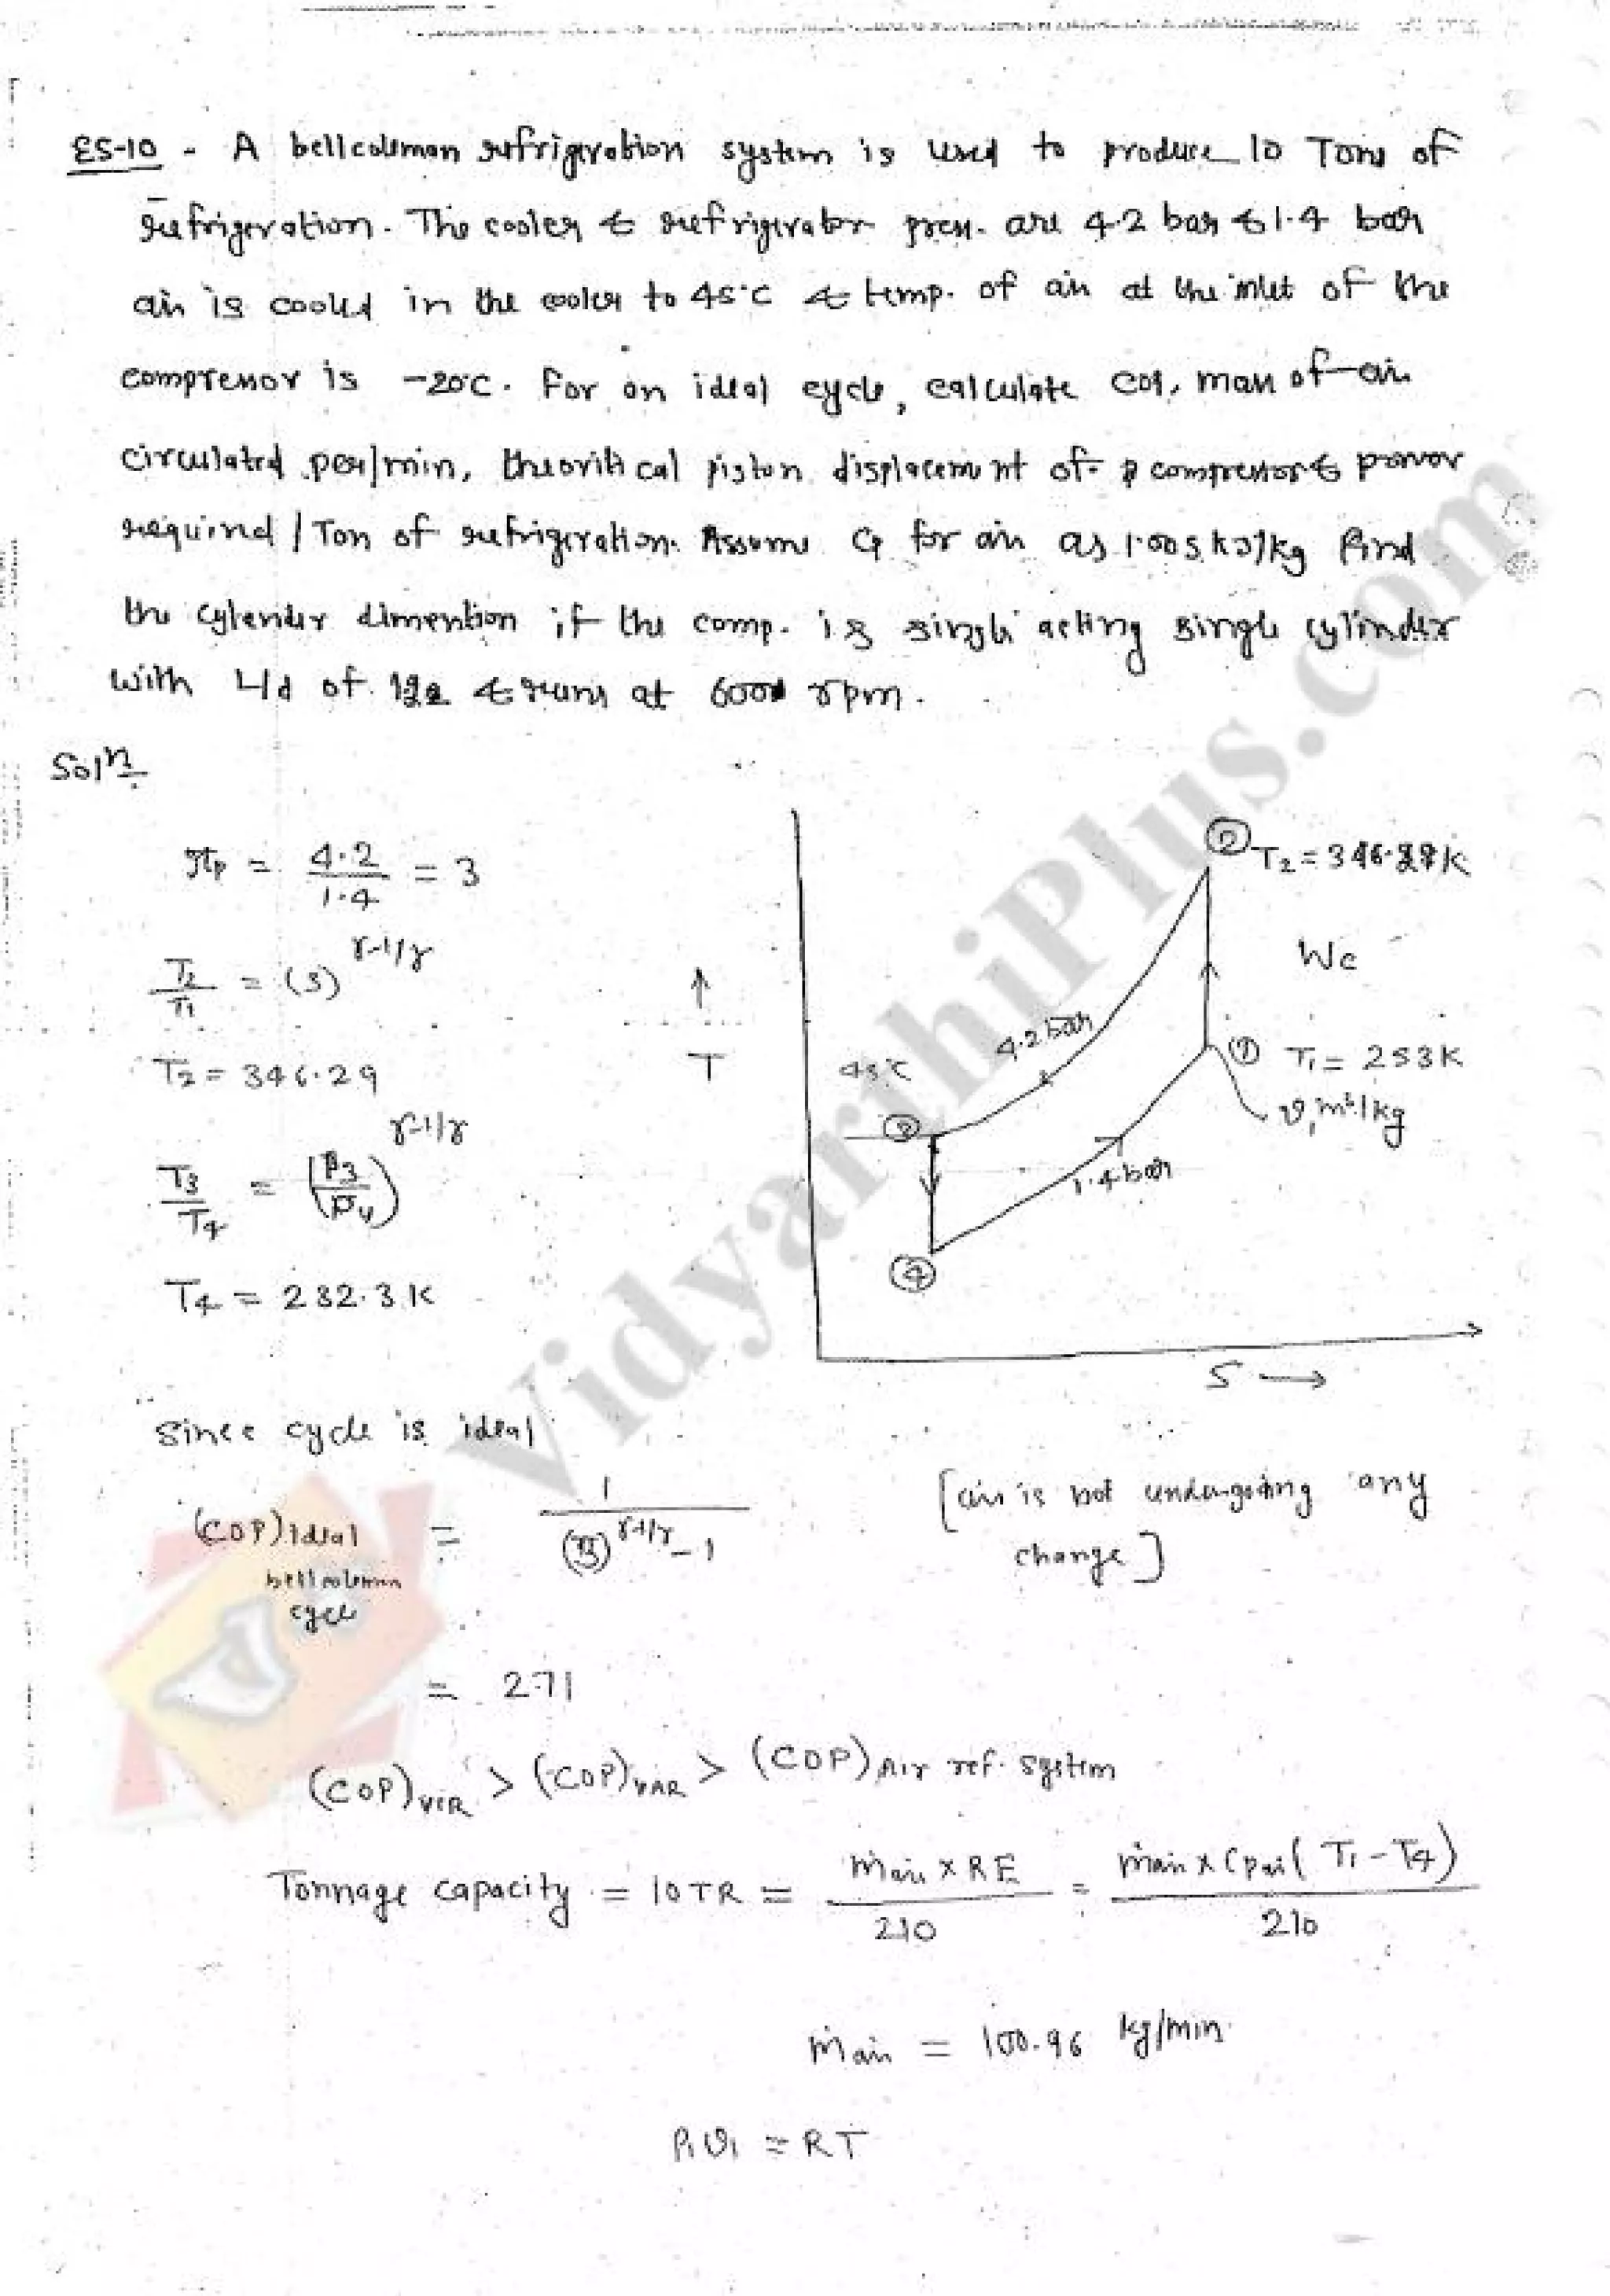 ES-10 - A bellcoleman refrigeration system is used to produce 10 Tons of
refrigeration. The cooler & refrigerator pres. are 4.2 bar & 1.4 bar
air is cooled in the cooler to 45°C & temp. of air at the inlet of the
compressor is -20°C. For an ideal cycle, calculate COP, mass of air
circulated per/min, theoritical piston displacement of compressor & power
required / Ton of refrigeration. Assume Cp for air as 1.005 kJ/kg find
the cylender dimention if the comp. is single acting single cylinder
with L/d of & runs at rpm.
Soln
rp = 4.2/1.4 = 3
T2/T1 = (3)^γ-1/γ
T2 = 346.29
T3/T4 = (P3/P4)^γ-1/γ
T4 = 232.3 K
② T2 = 346.29 K
Wc
① T1 = 253 K
v1 m³/kg
4.2 bar
45°C
③
1.4 bar
④
↑
T
S →
Since cycle is ideal
(COP) ideal bellcoleman cycle = 1/((3)^γ-1/γ - 1) [air is not undergoing any
change]
= 2.71
(COP)VCR > (COP)VAR > (COP)Air ref. system
Tonnage capacity = 10 TR = ṁair x RE / 210 = ṁair x Cpair (T1 - T4) / 210
ṁair = 100.96 kg/min
P1 v1 = RT
VidyarthiPlus.com